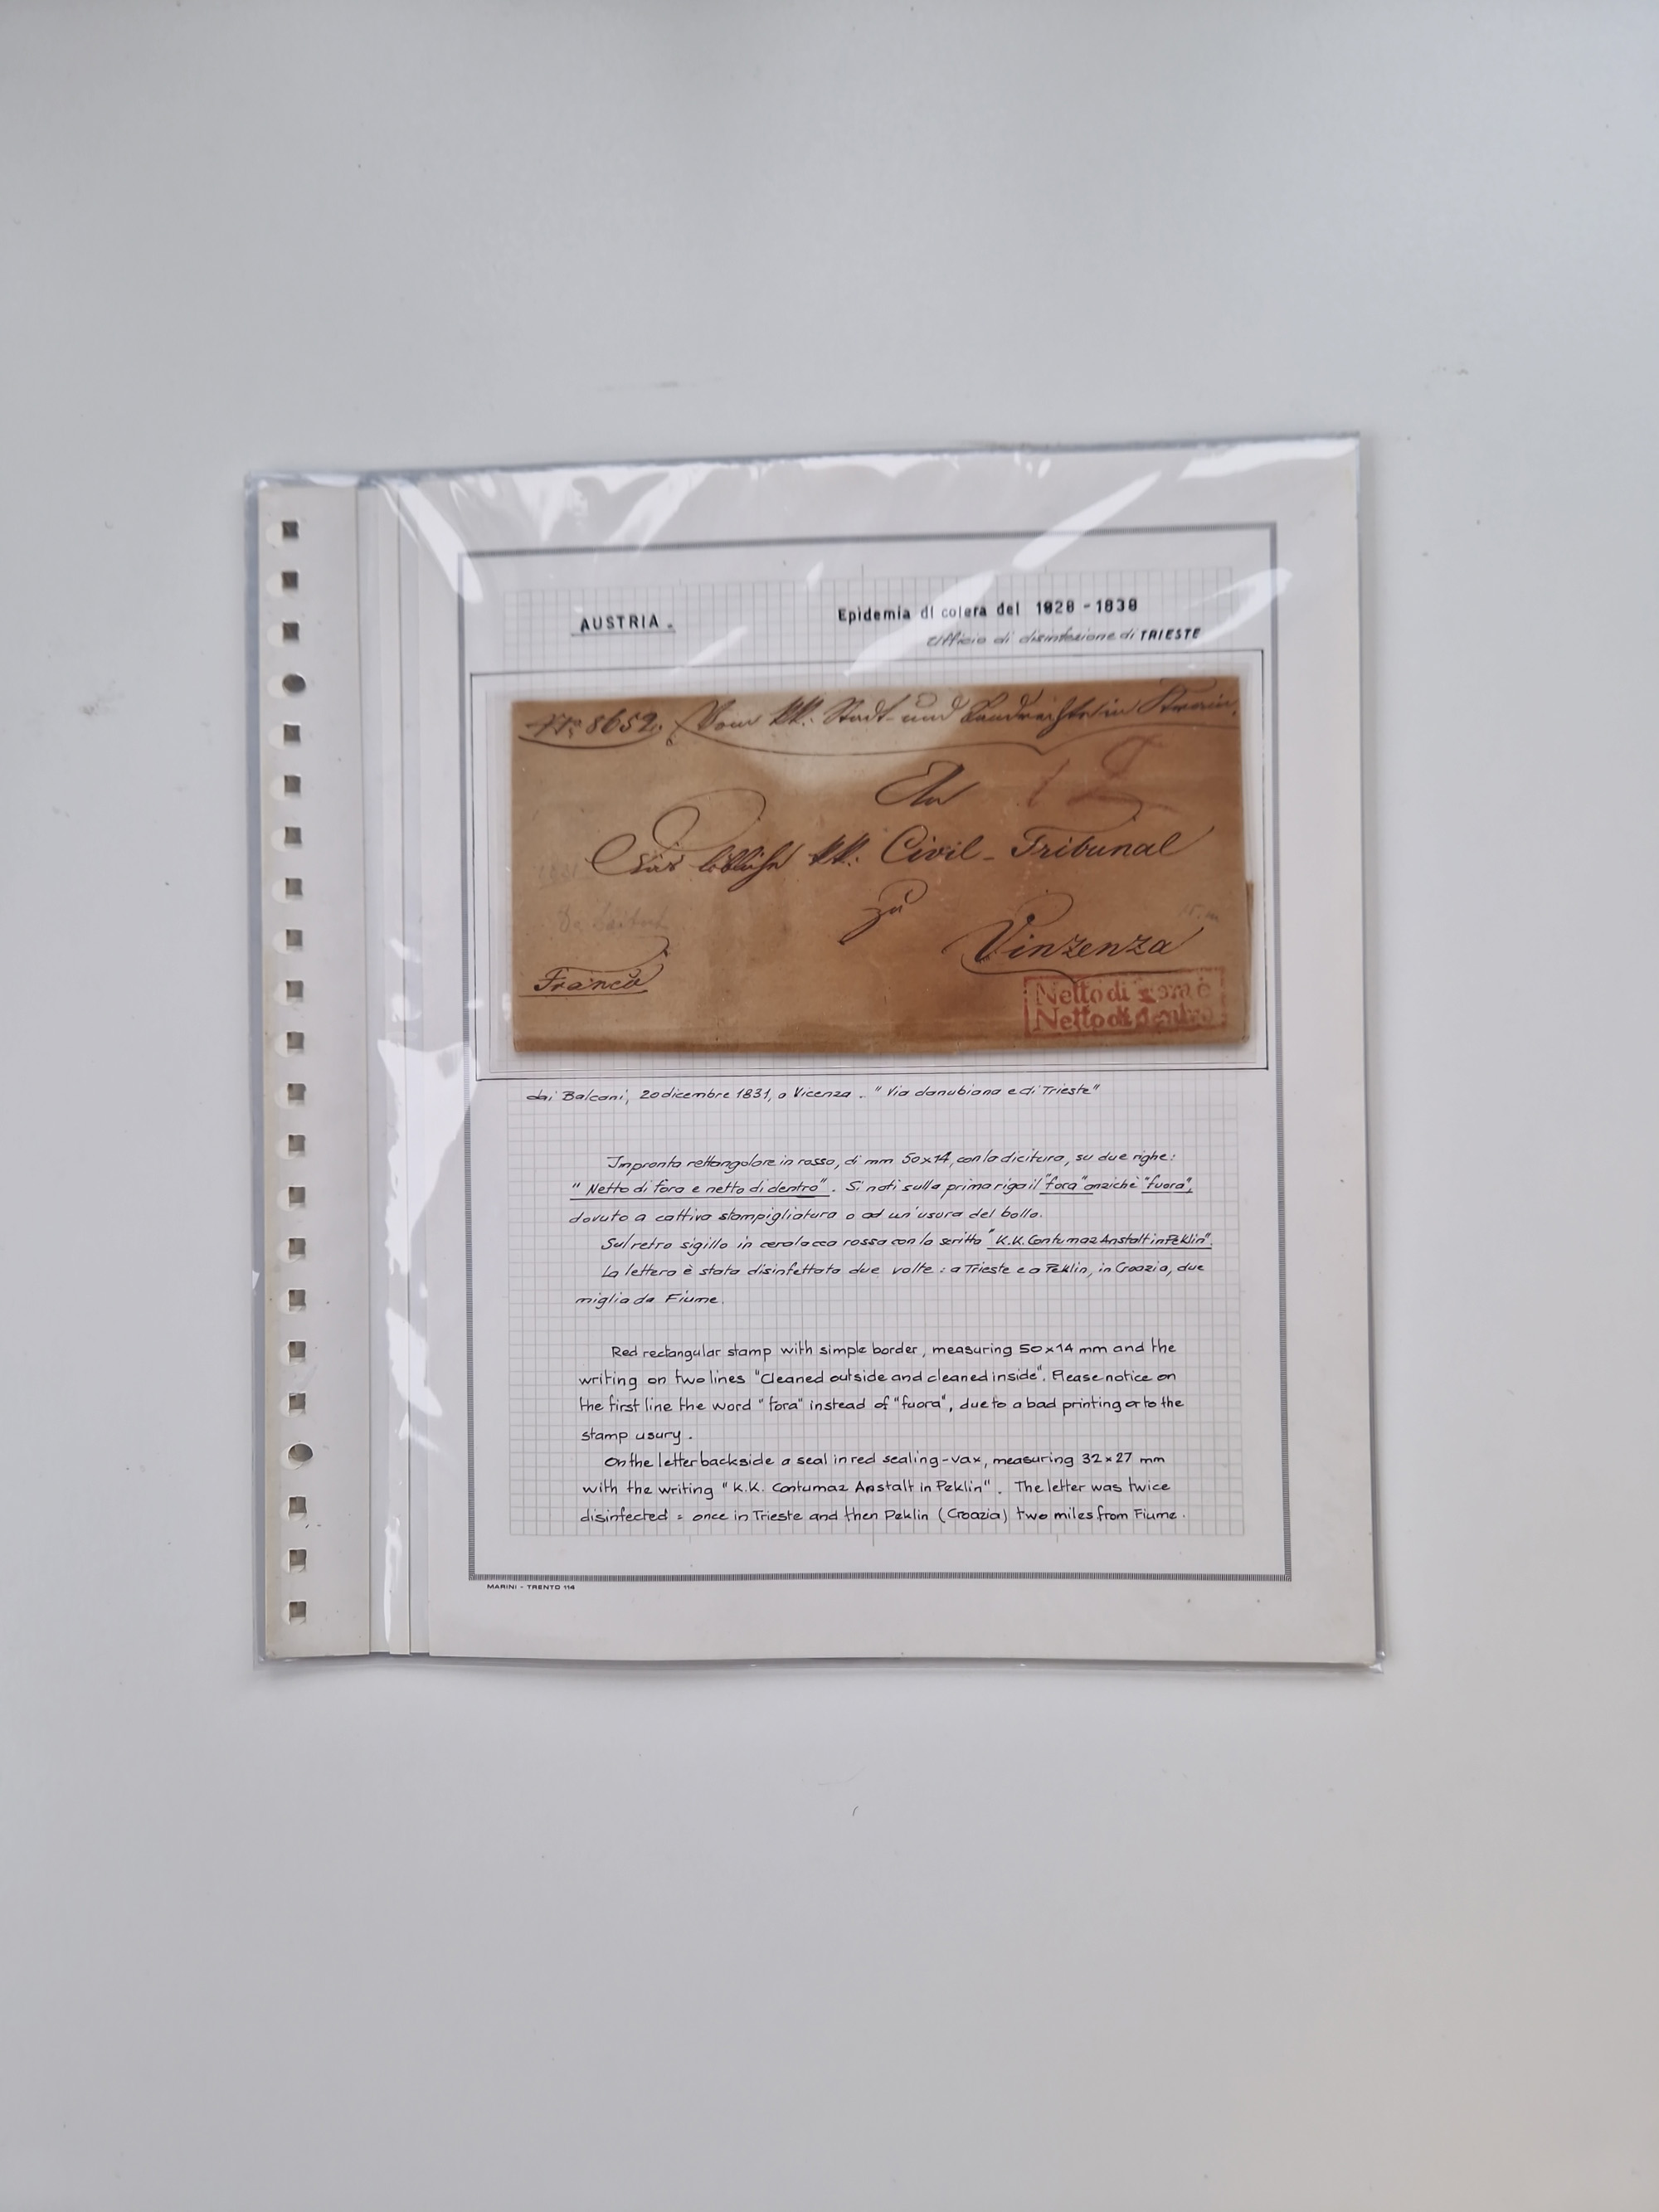 AUSTRIA.
Epidemia di colera del 1828 - 1838
Ufficio di disinfezione di TRIESTE
No. 8652. Vom kk: Stadt- und Landrechte in Krain.
An
Das löbliche kk: Civil-Tribunal
zu
Vinzenza
Franco
Netto di fora è
Netto di dentro
dai Balcani, 20 dicembre 1831, a Vicenza. "Via danubiana e di Trieste"
Impronta rettangolare in rosso, di mm 50x14, con la dicitura, su due righe:
"Netto di fora e netto di dentro". Si noti sulla prima riga il "fora" anziché "fuora",
dovuto a cattiva stampigliatura o ad un'usura del bollo.
Sul retro sigillo in ceralacca rossa con la scritta "K.K. Contumaz Anstalt in Peklin".
La lettera è stata disinfettata due volte: a Trieste e a Peklin, in Croazia, due
miglia da Fiume.
Red rectangular stamp with simple border, measuring 50x14 mm and the
writing on two lines "Cleaned outside and cleaned inside". Please notice on
the first line the word "fora" instead of "fuora", due to a bad printing or to the
stamp usury.
On the letter backside a seal in red sealing-vax, measuring 32x27 mm
with the writing "K.K. Contumaz Anstalt in Peklin". The letter was twice
disinfected: once in Trieste and then Peklin (Croazia) two miles from Fiume.
MARINI - TRENTO 114